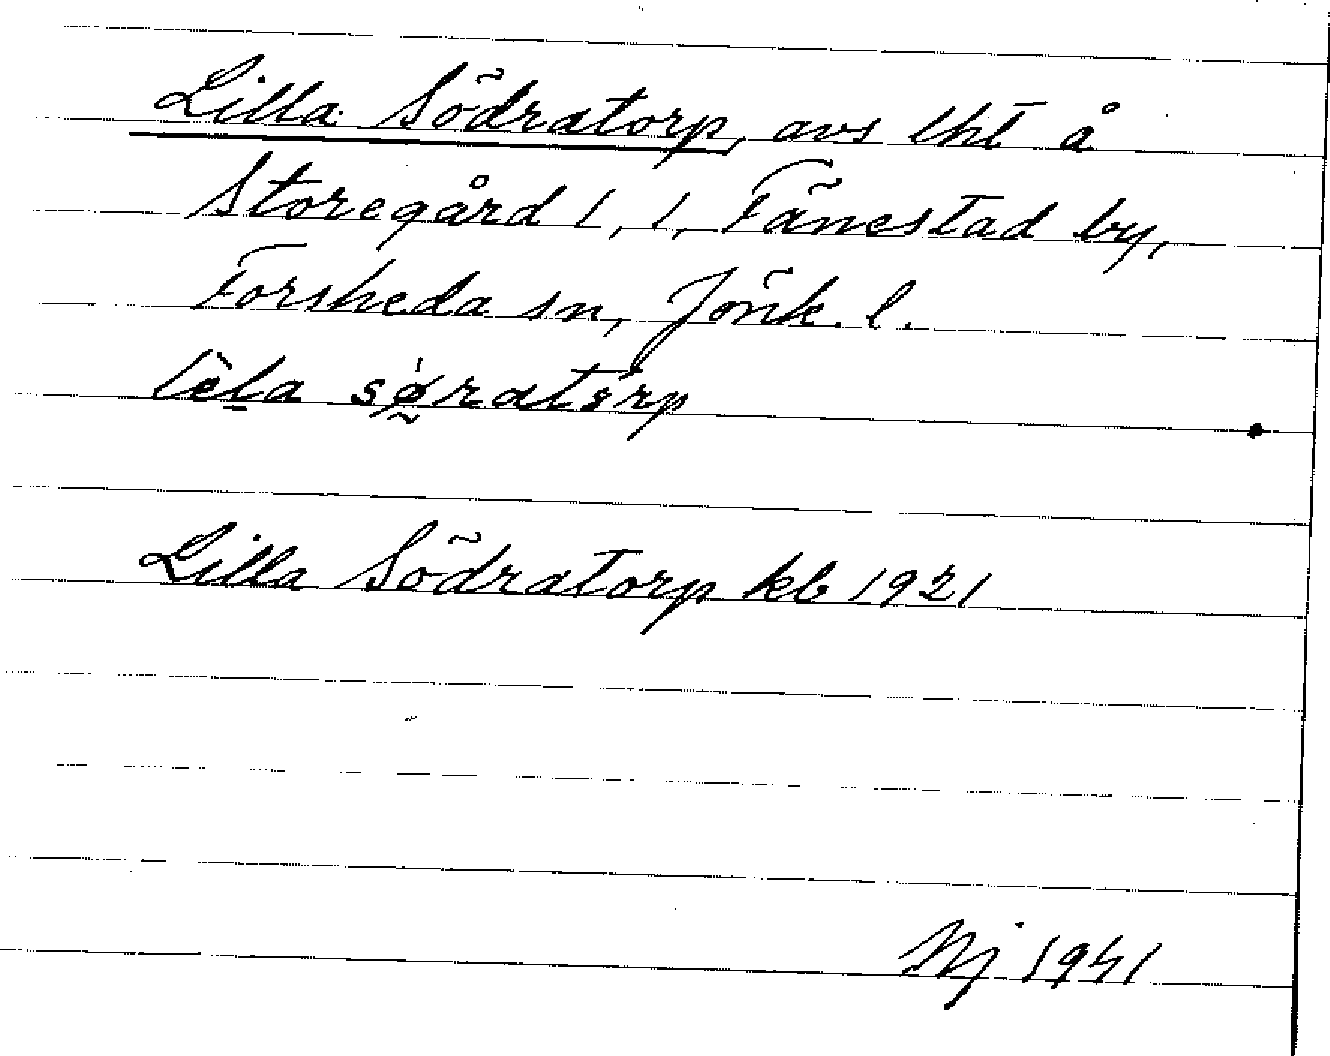 Lilla Södratorp, avs lht å
Storegård 1, 1, Fänestad by,
Forsheda sn, Jönk. l.
lèla søratorp
Lilla Södratorp kb 1921
Nj 1941